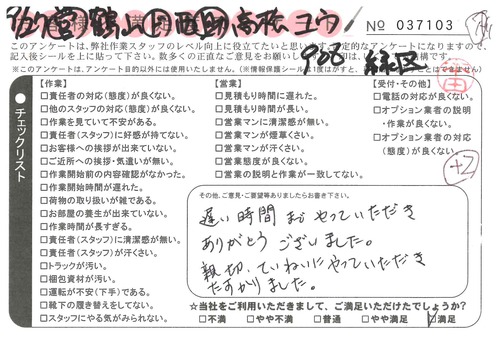 № 037103
このアンケートは、弊社作業スタッフのレベル向上に役立てたいと思い
908 緑区
※このアンケートは、アンケート目的以外には使用いたしません。
チェックリスト
【作業】
□責任者の対応(態度)が良くない。
□他のスタッフの対応(態度)が良くない。
□作業を見ていて不安がある。
□責任者(スタッフ)に好感が持てない。
□お客様への挨拶が出来ていない。
□ご近所への挨拶・気遣いが無い。
□作業開始前の内容確認がなかった。
□作業開始時間が遅れた。
□荷物の取り扱いが雑である。
□お部屋の養生が出来ていない。
□作業時間が長すぎる。
□責任者(スタッフ)に清潔感が無い。
□責任者(スタッフ)が汗くさい。
□トラックが汚い。
□梱包資材が汚い。
□運転が不安(下手)である。
□靴下の履き替えをしてない。
□スタッフにやる気がみられない。
【営業】
□見積もり時間に遅れた。
□見積もり時間が長い。
□営業マンに清潔感が無い。
□営業マンが煙草くさい。
□営業マンが汗くさい。
□営業態度が良くない。
□営業の説明と作業が一致してない。
【受付・その他】
□電話の対応が良くない。
□オプション業者の説明
・作業が良くない。
□オプション業者の対応
(態度)が良くない。
+2
その他、ご意見・ご要望等ありましたらお書き下さい。
遅い時間までやっていただき
ありがとうございました。
親切、ていねいにやっていただき
たすかりました。
☆当社をご利用いただきまして、ご満足いただけたでしょうか?
□不満 □やや不満 □普通 □やや満足 ☑満足